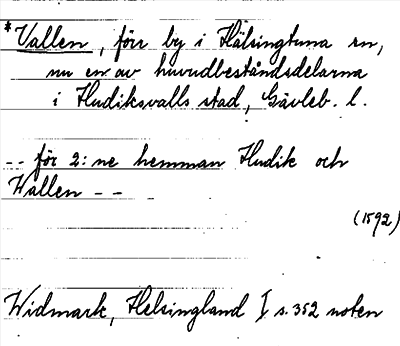 *Vallen, förr by i Hälsingtuna sn,
nu en av huvudbeståndsdelarna
i Hudiksvalls stad, Gävleb. l.
-- för 2:ne hemman Hudik och
Wallen --
(1592)
Widmark, Helsingland I s. 352 noten